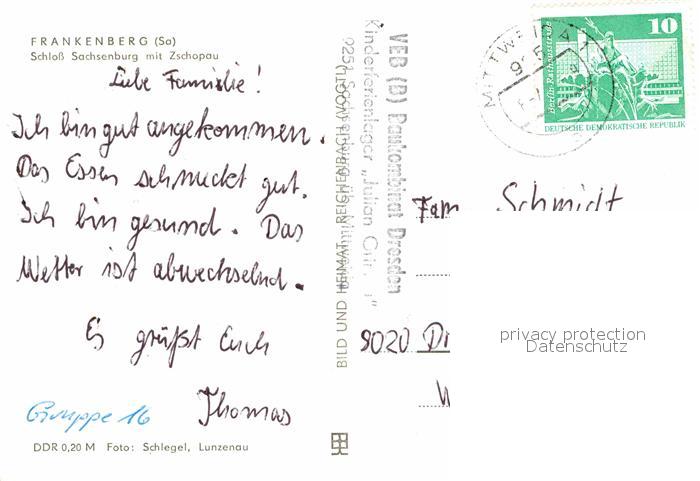 FRANKENBERG (Sa)
Schloß Sachsenburg mit Zschopau
Liebe Familie!
Ich bin gut angekommen.
Das Essen schmeckt gut.
Ich bin gesund. Das
Wetter ist abwechselnd.
Es grüßt Euch
Thomas
Gruppe 16
DDR 0,20 M Foto: Schlegel, Lunzenau
BILD UND HEIMAT REICHENBACH (VOGTL)
VEB (B) Baukombinat Dresden
Kinderferienlager „Julian
9251
MITTWEIDA 1
Berlin-Rathausstraße
10
DEUTSCHE DEMOKRATISCHE REPUBLIK
Fam Schmidt
8020
privacy protection
Datenschutz